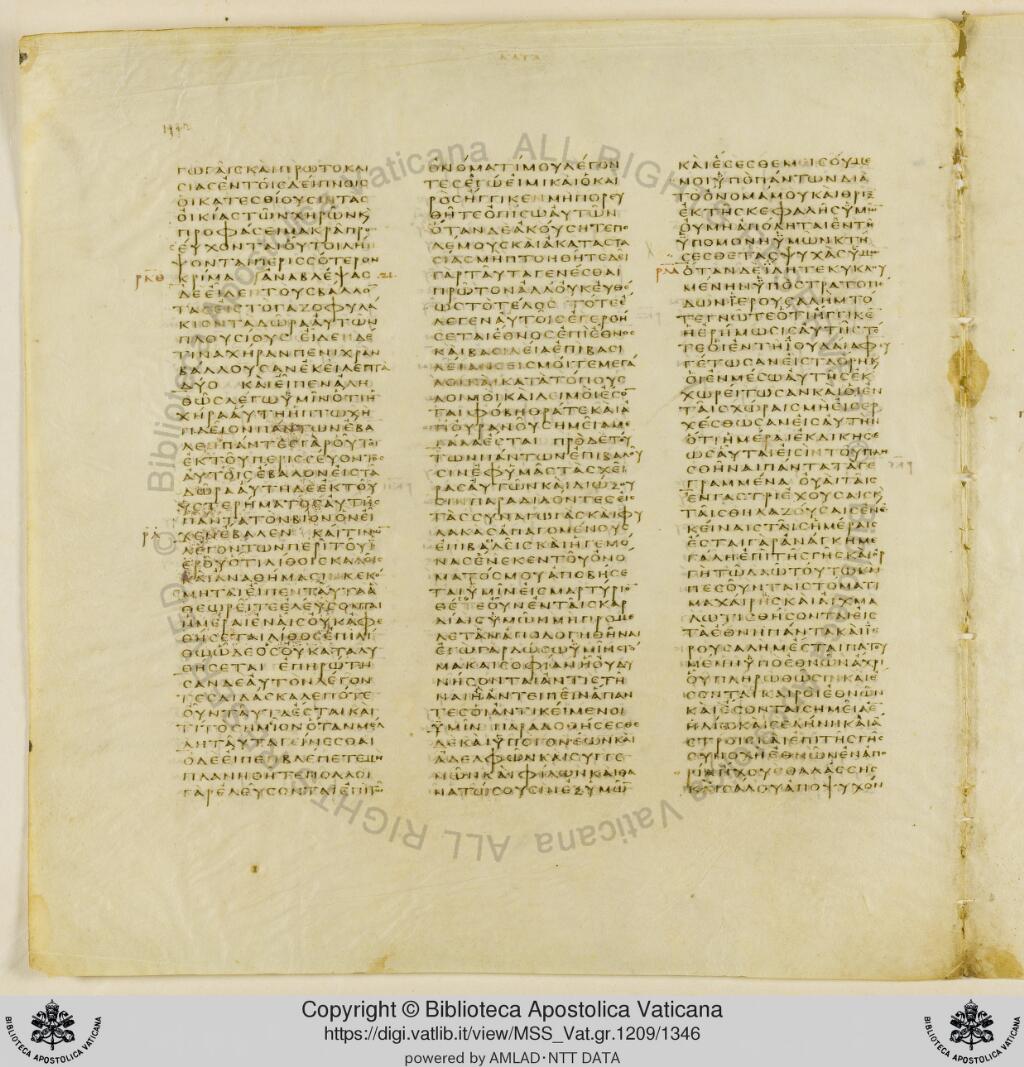 ΚΑΤΑ
ΓΩΓΑΙΣ ΚΑΙ ΠΡΩΤΟΚΛΙ
ΣΙΑΣ ΕΝ ΤΟΙΣ ΔΕΙΠΝΟΙΣ
ΟΙ ΚΑΤΕΣΘΙΟΥΣΙΝ ΤΑΣ
ΟΙΚΙΑΣ ΤΩΝ ΧΗΡΩΝ Κ
ΠΡΟΦΑΣΕΙ ΜΑΚΡΑ ΠΡΟ
ΕΥΧΟΝΤΑΙ ΟΥΤΟΙ ΛΗΜ
ΨΟΝΤΑΙ ΠΕΡΙΣΣΟΤΕΡΟΝ
ΡΚΘ ΚΡΙΜΑ ΑΝΑΒΛΕΨΑΣ 21
ΔΕ ΕΙΔΕΝ ΤΟΥΣ ΒΑΛΛΟΝ
ΤΑΣ ΕΙΣ ΤΟ ΓΑΖΟΦΥΛΑ
ΚΙΟΝ ΤΑ ΔΩΡΑ ΑΥΤΩΝ
ΠΛΟΥΣΙΟΥΣ ΕΙΔΕΝ ΔΕ
ΤΙΝΑ ΧΗΡΑΝ ΠΕΝΙΧΡΑΝ
ΒΑΛΛΟΥΣΑΝ ΕΚΕΙ ΛΕΠΤΑ
ΔΥΟ ΚΑΙ ΕΙΠΕΝ ΑΛΗ
ΘΩΣ ΛΕΓΩ ΥΜΙΝ ΟΤΙ Η
ΧΗΡΑ ΑΥΤΗ Η ΠΤΩΧΗ
ΠΛΕΙΟΝ ΠΑΝΤΩΝ ΕΒΑ
ΛΕΝ ΠΑΝΤΕΣ ΓΑΡ ΟΥΤΟΙ
ΕΚ ΤΟΥ ΠΕΡΙΣΣΕΥΟΝΤΟΣ
ΑΥΤΟΙΣ ΕΒΑΛΟΝ ΕΙΣ ΤΑ
ΔΩΡΑ ΑΥΤΗ ΔΕ ΕΚ ΤΟΥ
ΥΣΤΕΡΗΜΑΤΟΣ ΑΥΤΗΣ
ΠΑΝΤΑ ΤΟΝ ΒΙΟΝ ΟΝ ΕΙ
ΡΛ ΧΕΝ ΕΒΑΛΕΝ ΚΑΙ ΤΙΝΩ
ΛΕΓΟΝΤΩΝ ΠΕΡΙ ΤΟΥ Ϊ
ΕΡΟΥ ΟΤΙ ΛΙΘΟΙΣ ΚΑΛΟΙΣ
ΚΑΙ ΑΝΑΘΗΜΑΣΙΝ ΚΕΚΟ
ΣΜΗΤΑΙ ΕΙΠΕΝ ΤΑΥΤΑ Α
ΘΕΩΡΕΙΤΕ ΕΛΕΥΣΟΝΤΑΙ
ΗΜΕΡΑΙ ΕΝ ΑΙΣ ΟΥΚ ΑΦΕ
ΘΗΣΕΤΑΙ ΛΙΘΟΣ ΕΠΙ ΛΙ
ΘΩ ΩΔΕ ΟΣ ΟΥ ΚΑΤΑΛΥ
ΘΗΣΕΤΑΙ ΕΠΗΡΩΤΗ
ΣΑΝ ΔΕ ΑΥΤΟΝ ΛΕΓΟΝ
ΤΕΣ ΔΙΔΑΣΚΑΛΕ ΠΟΤΕ
ΟΥΝ ΤΑΥΤΑ ΕΣΤΑΙ ΚΑΙ
ΤΙ ΤΟ ΣΗΜΙΟΝ ΟΤΑΝ ΜΕΛ
ΛΗ ΤΑΥΤΑ ΓΕΙΝΕΣΘΑΙ
Ο ΔΕ ΕΙΠΕΝ ΒΛΕΠΕΤΕ ΜΗ
ΠΛΑΝΗΘΗΤΕ ΠΟΛΛΟΙ
ΓΑΡ ΕΛΕΥΣΟΝΤΑΙ ΕΠΙ ΤΩ
ΟΝΟΜΑΤΙ ΜΟΥ ΛΕΓΟΝ
ΤΕΣ ΕΓΩ ΕΙΜΙ ΚΑΙ Ο ΚΑΙ
ΡΟΣ ΗΓΓΙΚΕΝ ΜΗ ΠΟΡΕΥ
ΘΗΤΕ ΟΠΙΣΩ ΑΥΤΩΝ
ΟΤΑΝ ΔΕ ΑΚΟΥΣΗΤΕ ΠΟ
ΛΕΜΟΥΣ ΚΑΙ ΑΚΑΤΑΣΤΑ
ΣΙΑΣ ΜΗ ΠΤΟΗΘΗΤΕ ΔΕΙ
ΓΑΡ ΤΑΥΤΑ ΓΕΝΕΣΘΑΙ
ΠΡΩΤΟΝ ΑΛΛ ΟΥΚ ΕΥΘΕ
ΩΣ ΤΟ ΤΕΛΟΣ ΤΟΤΕ Ε
ΛΕΓΕΝ ΑΥΤΟΙΣ ΕΓΕΡΘΗ
ΣΕΤΑΙ ΕΘΝΟΣ ΕΠ ΕΘΝΟΣ
ΚΑΙ ΒΑΣΙΛΕΙΑ ΕΠΙ ΒΑΣΙ
ΛΕΙΑΝ ΣΕΙΣΜΟΙ ΤΕ ΜΕΓΑ
ΛΟΙ ΚΑΙ ΚΑΤΑ ΤΟΠΟΥΣ
ΛΟΙΜΟΙ ΚΑΙ ΛΕΙΜΟΙ ΕΣΟ
ΤΑΙ ΦΟΒΗΘΡΑ ΤΕ ΚΑΙ Α
Π ΟΥΡΑΝΟΥ ΣΗΜΕΙΑ ΜΕ
ΓΑΛΑ ΕΣΤΑΙ ΠΡΟ ΔΕ ΤΟΥ
ΤΩΝ ΠΑΝΤΩΝ ΕΠΙΒΑΛΟΥ
ΣΙΝ ΕΦ ΥΜΑΣ ΤΑΣ ΧΕΙ
ΡΑΣ ΑΥΤΩΝ ΚΑΙ ΔΙΩΞΟΥ
ΣΙΝ ΠΑΡΑΔΙΔΟΝΤΕΣ ΕΙΣ
ΤΑΣ ΣΥΝΑΓΩΓΑΣ ΚΑΙ ΦΥ
ΛΑΚΑΣ ΑΠΑΓΟΜΕΝΟΥΣ
ΕΠΙ ΒΑΣΙΛΕΙΣ ΚΑΙ ΗΓΕΜΟ
ΝΑΣ ΕΝΕΚΕΝ ΤΟΥ ΟΝΟ
ΜΑΤΟΣ ΜΟΥ ΑΠΟΒΗΣΕ
ΤΑΙ ΥΜΙΝ ΕΙΣ ΜΑΡΤΥΡΙΟ
ΘΕΤΕ ΟΥΝ ΕΝ ΤΑΙΣ ΚΑΡ
ΔΙΑΙΣ ΥΜΩΝ ΜΗ ΠΡΟΜΕ
ΛΕΤΑΝ ΑΠΟΛΟΓΗΘΗΝΑΙ
ΕΓΩ ΓΑΡ ΔΩΣΩ ΥΜΙΝ ΣΤΟ
ΜΑ ΚΑΙ ΣΟΦΙΑΝ Η ΟΥ ΔΥ
ΝΗΣΟΝΤΑΙ ΑΝΤΙΣΤΗ
ΝΑΙ Η ΑΝΤΕΙΠΕΙΝ ΑΠΑΝ
ΤΕΣ ΟΙ ΑΝΤΙΚΕΙΜΕΝΟΙ
ΥΜΙΝ ΠΑΡΑΔΟΘΗΣΕΣΘΕ
ΔΕ ΚΑΙ ΥΠΟ ΓΟΝΕΩΝ ΚΑΙ
ΑΔΕΛΦΩΝ ΚΑΙ ΣΥΓΓΕ
ΝΩΝ ΚΑΙ ΦΙΛΩΝ ΚΑΙ ΘΑ
ΝΑΤΩΣΟΥΣΙΝ ΕΞ ΥΜΩ
ΚΑΙ ΕΣΕΣΘΕ ΜΕΙΣΟΥΜΕ
ΝΟΙ ΥΠΟ ΠΑΝΤΩΝ ΔΙΑ
ΤΟ ΟΝΟΜΑ ΜΟΥ ΚΑΙ ΘΡΙΞ
ΕΚ ΤΗΣ ΚΕΦΑΛΗΣ ΥΜΩ
ΟΥ ΜΗ ΑΠΟΛΗΤΑΙ ΕΝ ΤΗ
ΥΠΟΜΟΝΗ ΥΜΩΝ ΚΤΗ
ΣΕΣΘΕ ΤΑΣ ΨΥΧΑΣ ΥΜΩ
ΡΛΑ ΟΤΑΝ ΔΕ ΙΔΗΤΕ ΚΥΚΛΟΥ
ΜΕΝΗΝ ΥΠΟ ΣΤΡΑΤΟΠΕ
ΔΩΝ ΙΕΡΟΥΣΑΛΗΜ ΤΟ
ΤΕ ΓΝΩΤΕ ΟΤΙ ΗΓΓΙΚΕ
Η ΕΡΗΜΩΣΙΣ ΑΥΤΗΣ ΤΟ
ΤΕ ΟΙ ΕΝ ΤΗ ΙΟΥΔΑΙΑ ΦΕΥ
ΓΕΤΩΣΑΝ ΕΙΣ ΤΑ ΟΡΗ Κ
ΟΙ ΕΝ ΜΕΣΩ ΑΥΤΗΣ ΕΚ
ΧΩΡΕΙΤΩΣΑΝ ΚΑΙ ΟΙ ΕΝ
ΤΑΙΣ ΧΩΡΑΙΣ ΜΗ ΕΙΣΕΡ
ΧΕΣΘΩΣΑΝ ΕΙΣ ΑΥΤΗΝ
ΟΤΙ ΗΜΕΡΑΙ ΕΚΔΙΚΗΣΕ
ΩΣ ΑΥΤΑΙ ΕΙΣΙΝ ΤΟΥ ΠΛΗ
ΣΘΗΝΑΙ ΠΑΝΤΑ ΤΑ ΓΕ
ΓΡΑΜΜΕΝΑ ΟΥΑΙ ΤΑΙΣ
ΕΝ ΓΑΣΤΡΙ ΕΧΟΥΣΑΙΣ Κ
ΤΑΙΣ ΘΗΛΑΖΟΥΣΑΙΣ ΕΝ Ε
ΚΕΙΝΑΙΣ ΤΑΙΣ ΗΜΕΡΑΙΣ
ΕΣΤΑΙ ΓΑΡ ΑΝΑΓΚΗ ΜΕ
ΓΑΛΗ ΕΠΙ ΤΗΣ ΓΗΣ ΚΑΙ ΟΡ
ΓΗ ΤΩ ΛΑΩ ΤΟΥΤΩ ΚΑΙ
ΠΕΣΟΥΝΤΑΙ ΣΤΟΜΑΤΙ
ΜΑΧΑΙΡΗΣ ΚΑΙ ΑΙΧΜΑ
ΛΩΤΙΣΘΗΣΟΝΤΑΙ ΕΙΣ
ΤΑ ΕΘΝΗ ΠΑΝΤΑ ΚΑΙ ΙΕ
ΡΟΥΣΑΛΗΜ ΕΣΤΑΙ ΠΑΤΟΥ
ΜΕΝΗ ΥΠΟ ΕΘΝΩΝ ΑΧΡΙ
ΟΥ ΠΛΗΡΩΘΩΣΙΝ ΚΑΙ Ε
ΣΟΝΤΑΙ ΚΑΙΡΟΙ ΕΘΝΩΝ
ΚΑΙ ΕΣΟΝΤΑΙ ΣΗΜΕΙΑ Ε
Ν ΗΛΙΩ ΚΑΙ ΣΕΛΗΝΗ ΚΑΙ Α
ΣΤΡΟΙΣ ΚΑΙ ΕΠΙ ΤΗΣ ΓΗΣ
ΣΥΝΟΧΗ ΕΘΝΩΝ ΕΝ ΑΠΟ
ΡΙΑ ΗΧΟΥΣ ΘΑΛΑΣΣΗΣ
ΚΑΙ ΣΑΛΟΥ ΑΠΟΨΥΧΟΝ
Copyright © Biblioteca Apostolica Vaticana
https://digi.vatlib.it/view/MSS_Vat.gr.1209/1346
powered by AMLAD·NTT DATA